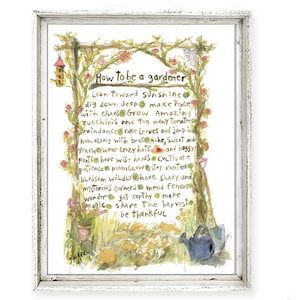 How to be a gardener
Lean Toward sunshine
dig down deep make peace
with chaos Grow Amazing
zucchinis and too many tomatoes
raindance rake leaves and jump in
hum along with Bees, Sweat and
wear crazy hats and baggy
pants have wise hands cultivate
patience moonglow stay rooted
blossom wildly have shady and
mysterious corners mend fences
wonder get earthy make
music share the harvest
be thankful